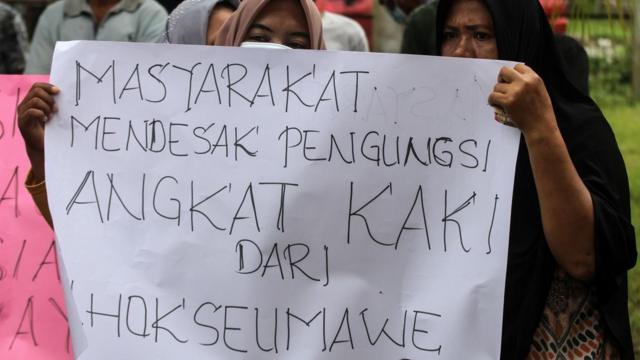 MASYARAKAT
MENDESAK PENGUNGSI
ANGKAT KAKI
DARI
LHOKSEUMAWE